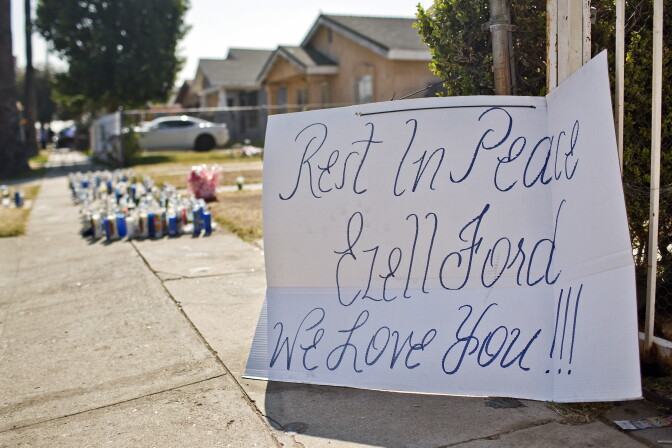 Rest In Peace
Ezell Ford
We Love You!!!